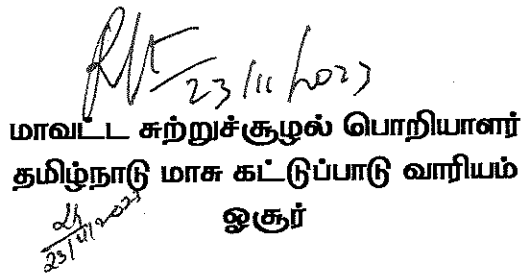 23/11/2023
மாவட்ட சுற்றுச்சூழல் பொறியாளர்
தமிழ்நாடு மாசு கட்டுப்பாடு வாரியம்
ஓசூர்
23/11/2023